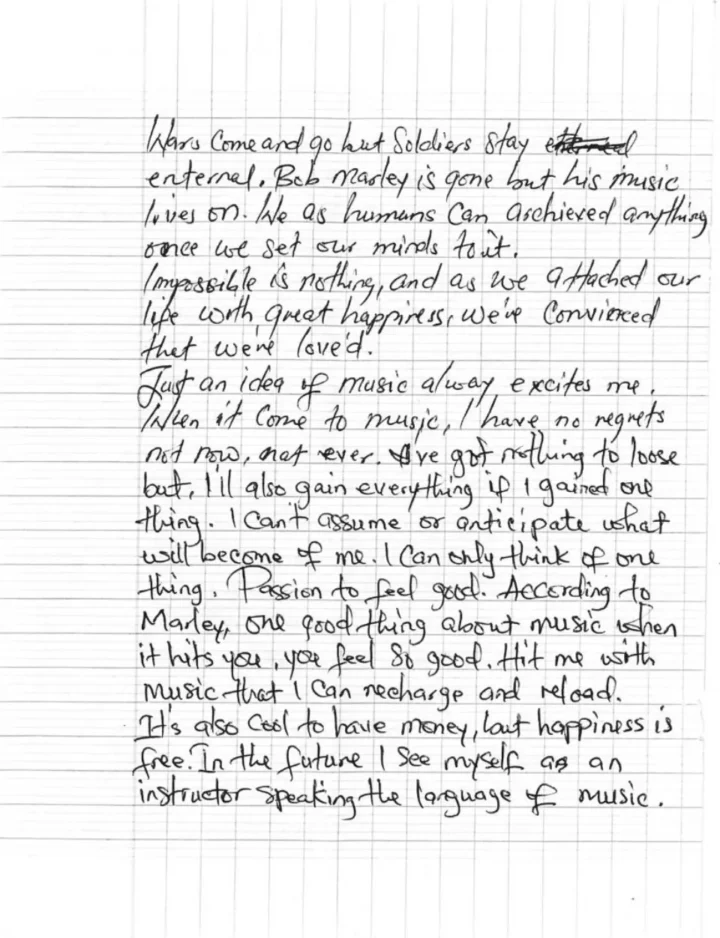 Wars Come and go but Soldiers stay
enternal. Bob Marley is gone but his music
lives on. We as humans Can archieved anything
once we set our minds to it.
Impossible is nothing, and as we attached our
life with great happiness, we're Convienced
that we're love'd.
Just an idea of music alway excites me.
When it Come to music, I have no regrets
not now, not ever. I've got nothing to loose
but, I'll also gain everything if I gained one
thing. I Can't assume or anticipate what
will become of me. I Can only think of one
thing. Passion to feel good. According to
Marley, one good thing about music when
it hits you, you feel So good. Hit me with
music that I Can recharge and reload.
It's also Cool to have money, but happiness is
free. In the future I See myself as an
instructor speaking the language of music.